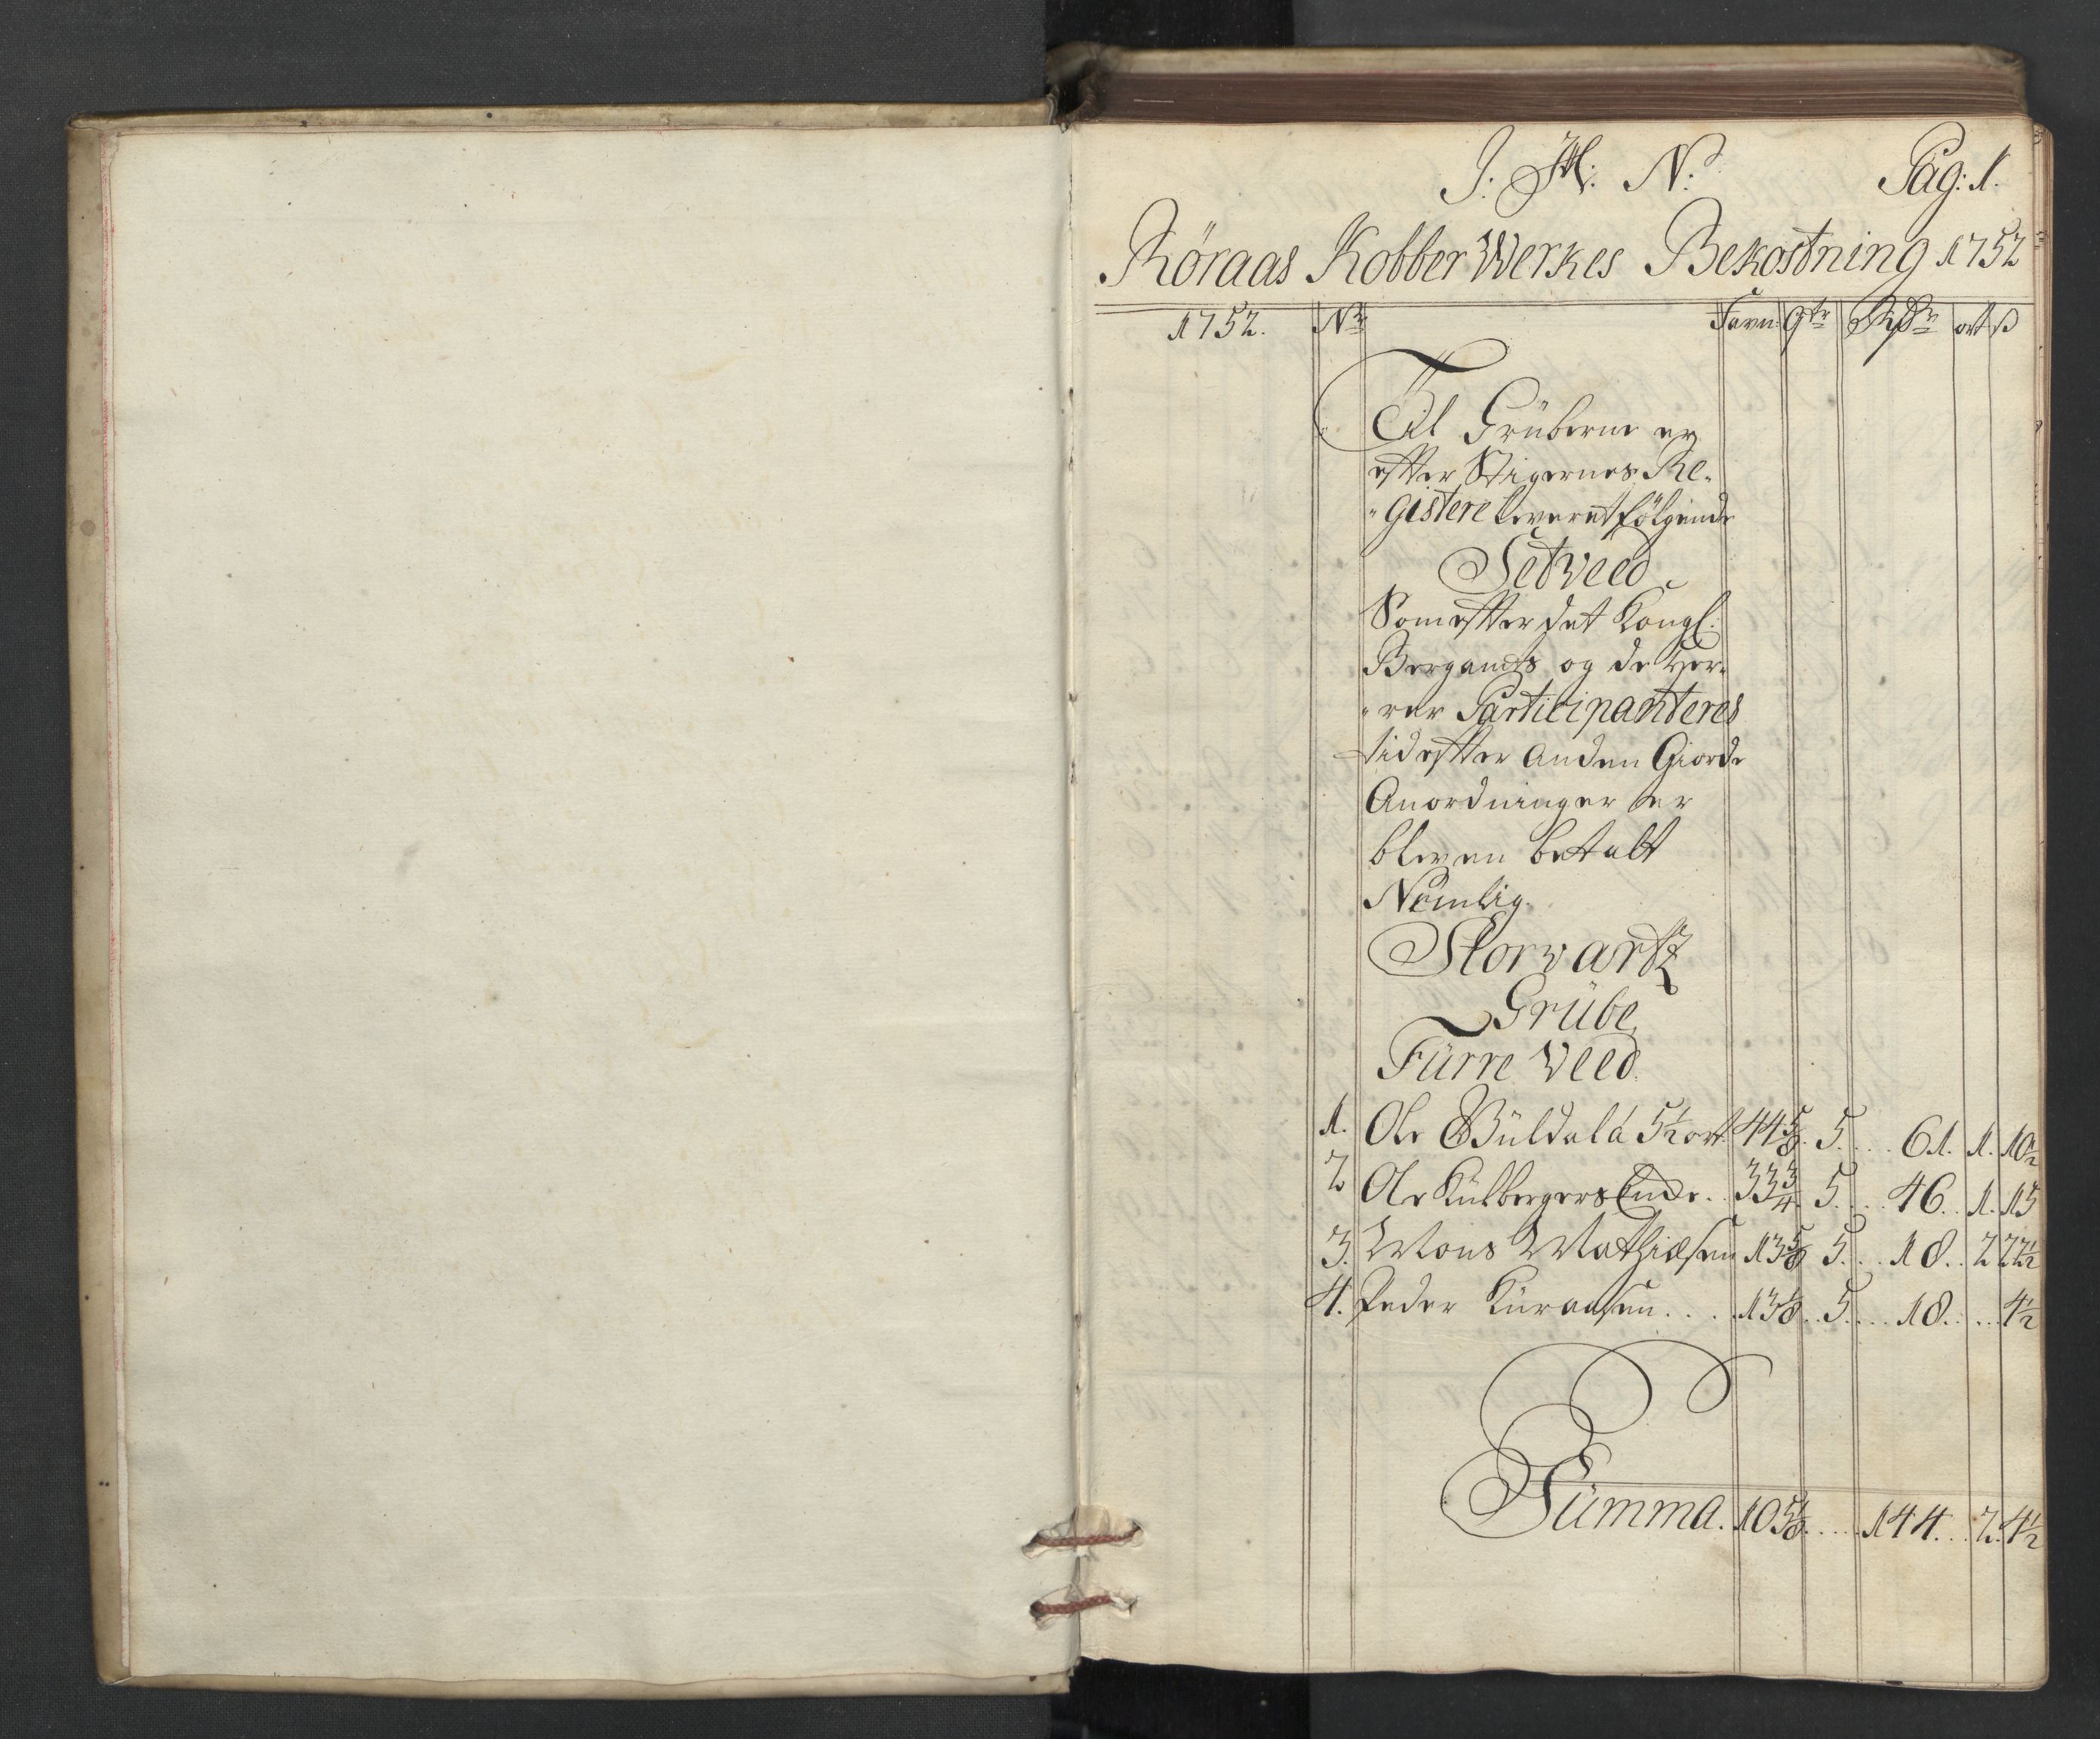 J. H. N.
Pag: 1.
Röraas Kobber Werkes Bekostning 1752
1752. Nr Favn qtr Rdr ort ß
Til Grüberne er
efter Stigernes Re-
gistere leveret følgende
Setveed
Som efter det Kongl:
Bergamts og de Her-
rer Participanteres
tid efter anden Giorde
Anordninger er
bleven betalt
Nemlig.
Storvartz
Grübe
Fürre Veed.
1. Ole 5½ ort 44⅝. 5. 61. 1. 10½
2 Ole 33¾ 5 46. 1. 15
3. Mons Mathiesen 13⅝ 5. 18. 2 22½
4. Peder 13⅛ 5. 18. 4½
Summa. 105⅛ 144. 2. 4½